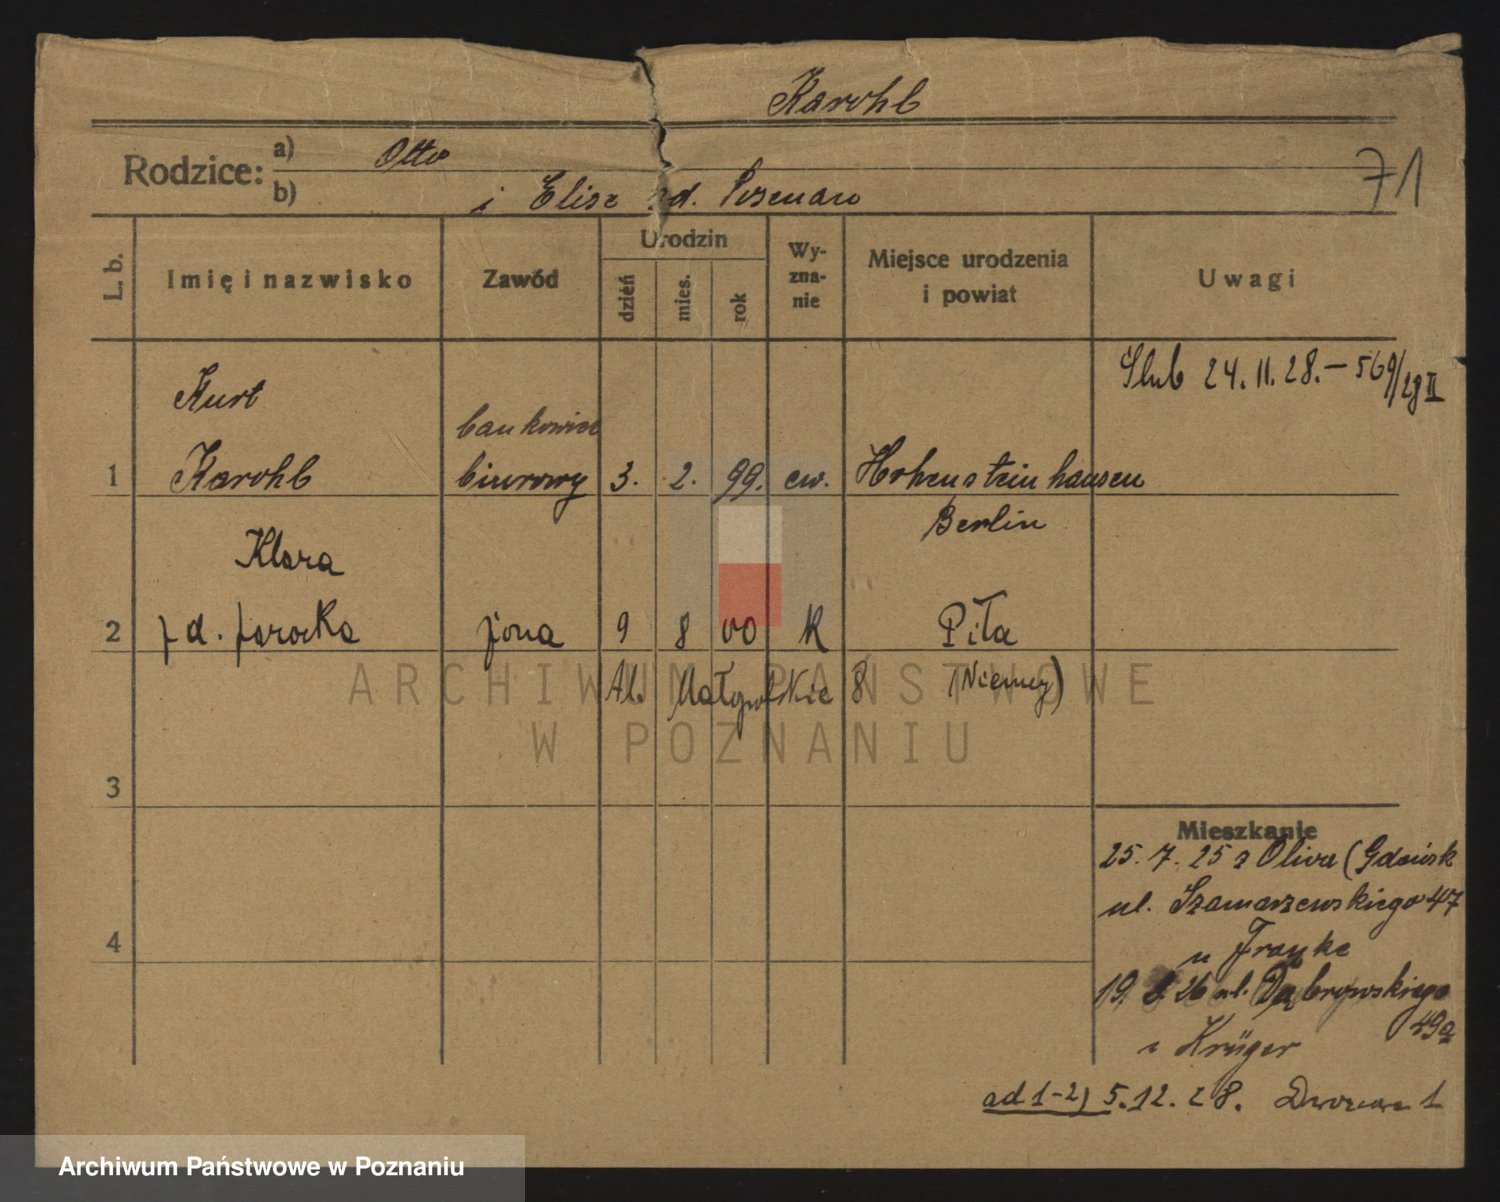 Karohl
71
Rodzice: a) Otto
b) i Elise zd.
L. b. Imię i nazwisko Zawód Urodzin dzień mies. rok Wyznanie Miejsce urodzenia i powiat Uwagi
Ślub 24. 11. 28. – 569/28 II
Kurt
bankowiec
1 Karohl biurowy 3. 2. 99. ew. Hohensteinhausen
Berlin
Klara
2 z d. Jarocka żona 9 8 00 K Piła
Al. Małopolskie 8 (Niemcy)
3
4
Mieszkanie
25. 7. 25 z Oliva (Gdańsk
ul. Szamarzewskiego 47
u Franke
19. 26 ul. Dąbrowskiego
49a
Krüger
ad 1-2) 5. 12. 28. 1
ARCHIWUM PAŃSTWOWE
W POZNANIU
Archiwum Państwowe w Poznaniu